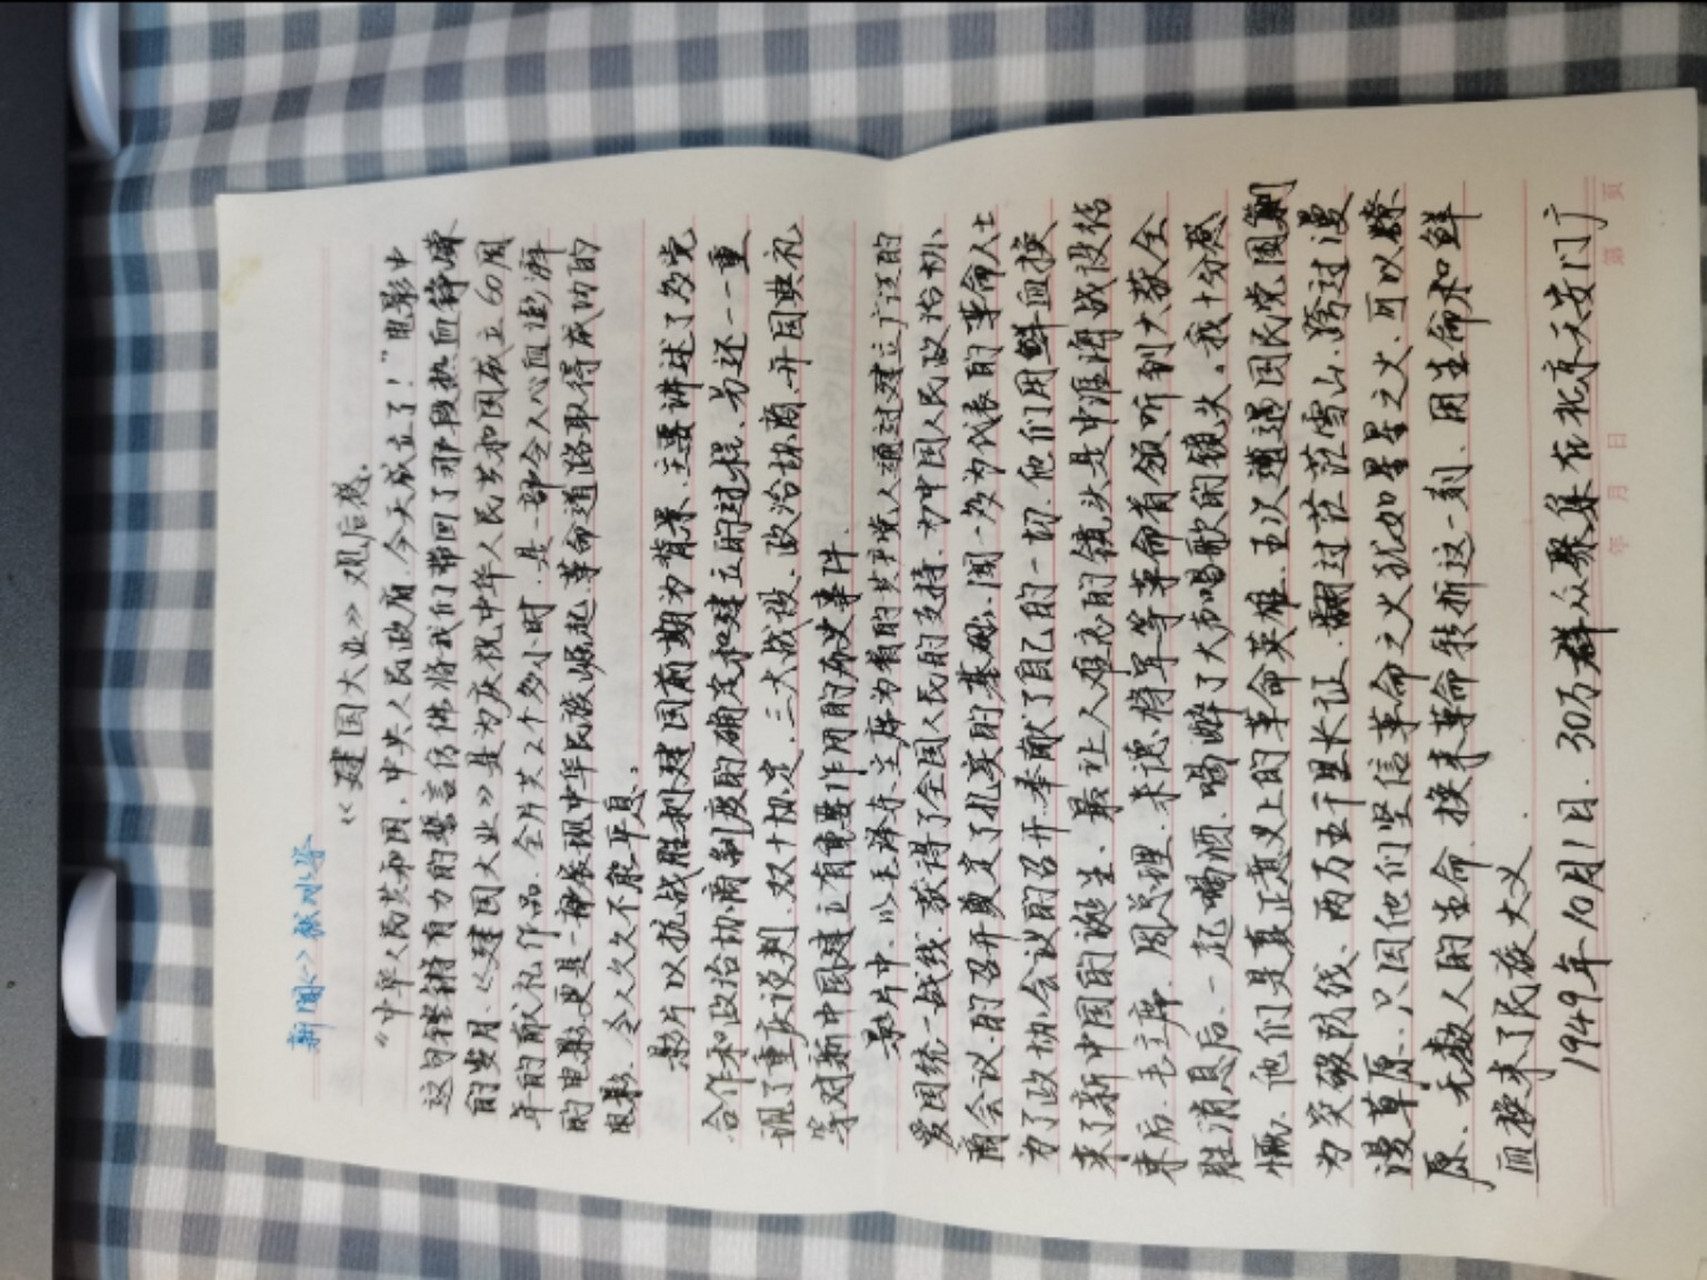 新闻(1)
《建国大业》观后感.
“中华人民共和国、中央人民政府、今天成立了！”电影中
这句铿锵有力的誓言仿佛将我们带回了那段热血铮嵘
的岁月、《建国大业》是为庆祝中华人民共和国成立60周
年的献礼作品、全片共2个多小时、是一部令人心血澎湃
的电影、更是一部展现中华民族崛起、革命道路取得成功的
电影、令人久久不能平息。
影片以抗战胜利建国前期为背景、主要讲述了多党
合作和政治协商制度的确定和建立的过程、另还一一重
现了重庆谈判、双十协定、三大战役、政治协商、开国典礼
等对新中国建立有重要作用的历史事件.
影片中、以毛泽东主席为首的共产党人通过建立广泛的
爱国统一战线、获得了全国人民的支持、为中国人民政治协
商会议的召开奠定了扎实的基础、闻一多为代表的革命人士
为了政协会议的召开、奉献了自己的一切、他们用鲜血换
来了新中国的诞生、最让人难忘的镜头是中淮海战役结
束后、毛主席、周总理、朱德将军等革命首领听到大获全
胜消息后、一起喝酒、喝醉了大声唱歌的镜头。我十分感
慨、他们是真正意义上的革命英雄、五次遭遇国民党围剿
为突破防线、两万五千里长征、翻过茫茫雪山、跨过漫
漫草原、只因他们坚信革命之火犹如星星之火、可以燎
原、无数人的生命、换来革命转折这一刻、因生命和鲜
血换来了民族大义.
1949年10月1日、30万群众聚集在北京天安门广
年 月 日 第 页